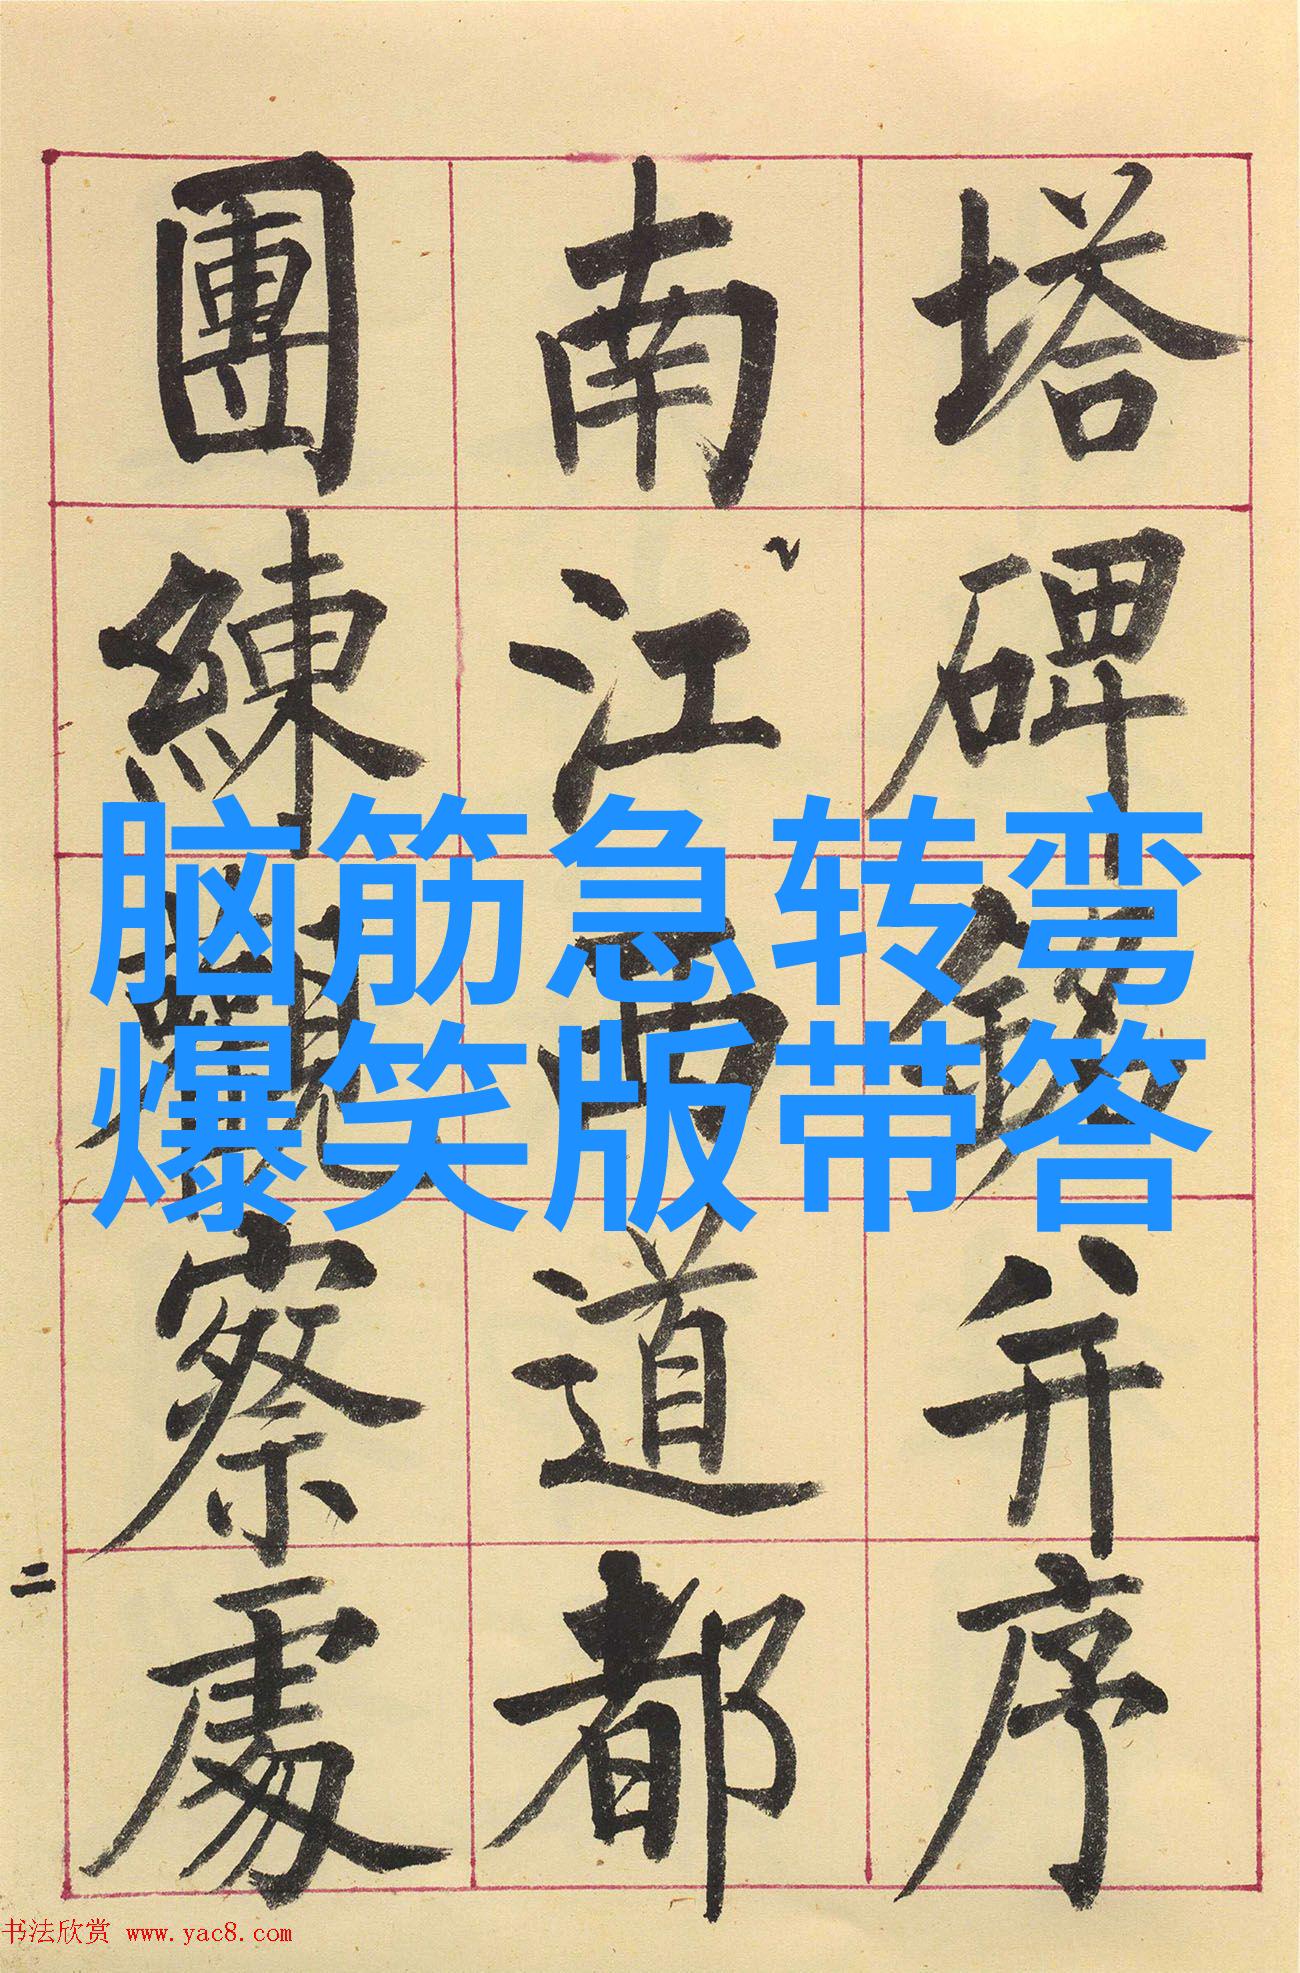 塔碑銘并序
南江西道都
團練觀察處
脑筋急转弯
爆笑版带答
二
书法欣赏 www.yac8.com